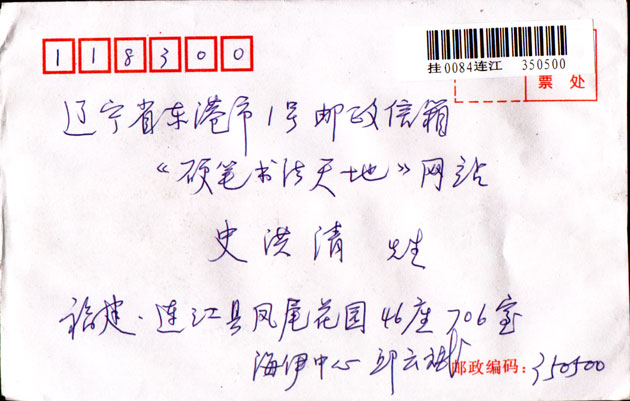 118300
挂0084连江 350500
票处
辽宁省东港市1号邮政信箱
《硬笔书法天地》网站
史洪清 先生
福建·连江县凤尾花园46座706室
海伊中心 邱云
邮政编码：350500